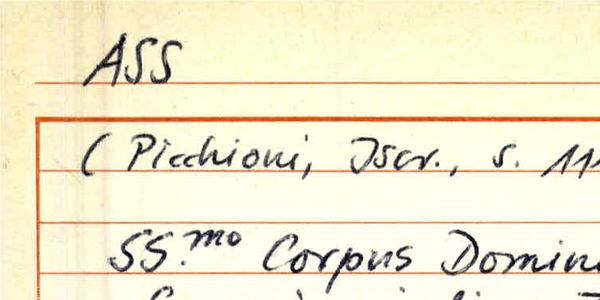 ASS
(Picchioni, Iscr., s. 11
SS.mo Corpus Domin